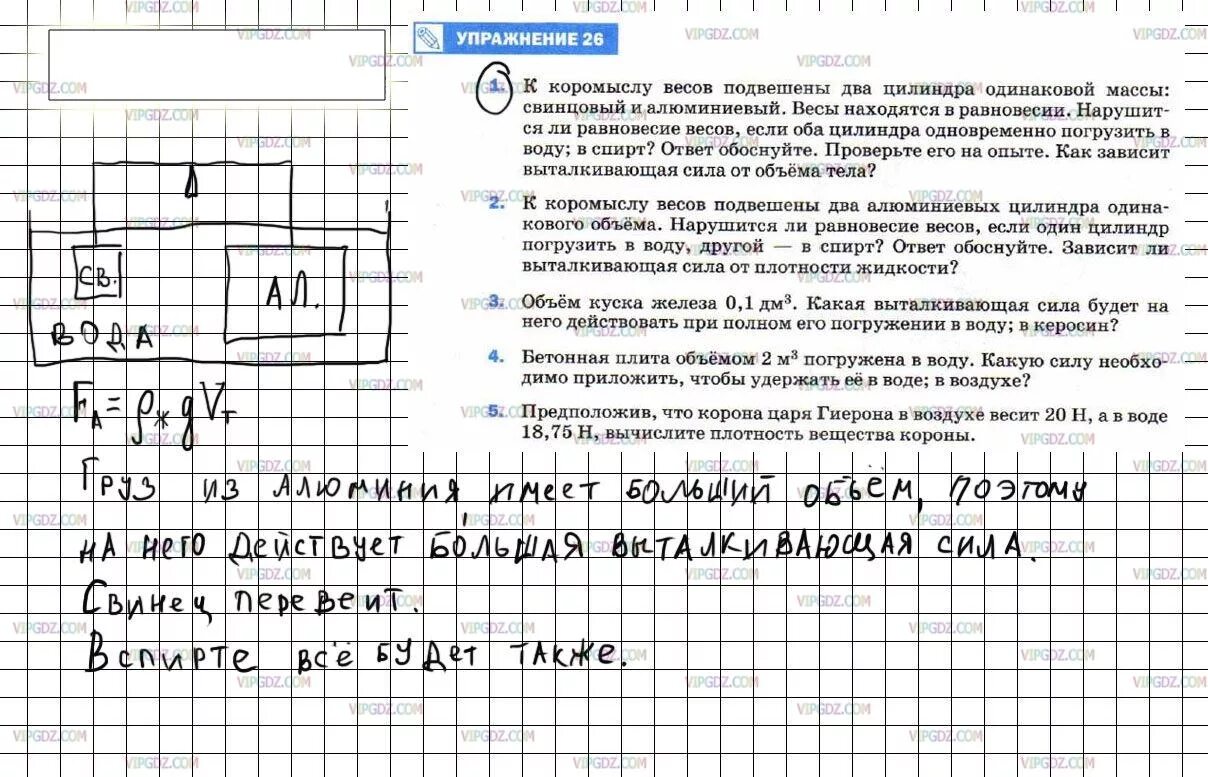 УПРАЖНЕНИЕ 26
1. К коромыслу весов подвешены два цилиндра одинаковой массы:
свинцовый и алюминиевый. Весы находятся в равновесии. Нарушит-
ся ли равновесие весов, если оба цилиндра одновременно погрузить в
воду; в спирт? Ответ обоснуйте. Проверьте его на опыте. Как зависит
выталкивающая сила от объёма тела?
2. К коромыслу весов подвешены два алюминиевых цилиндра одина-
кового объёма. Нарушится ли равновесие весов, если один цилиндр
погрузить в воду, другой — в спирт? Ответ обоснуйте. Зависит ли
выталкивающая сила от плотности жидкости?
3. Объём куска железа 0,1 дм³. Какая выталкивающая сила будет на
него действовать при полном его погружении в воду; в керосин?
4. Бетонная плита объёмом 2 м³ погружена в воду. Какую силу необхо-
димо приложить, чтобы удержать её в воде; в воздухе?
5. Предположив, что корона царя Гиерона в воздухе весит 20 Н, а в воде
18,75 Н, вычислите плотность вещества короны.
СВ.
АЛ.
ВОДА
F_A = ρ_ж g V_т
Груз из алюминия имеет больший объём, поэтому
на него действует бо́льшая выталкивающая сила.
Свинец перевеит.
В спирте всё будет также.
VIPGDZ.COM